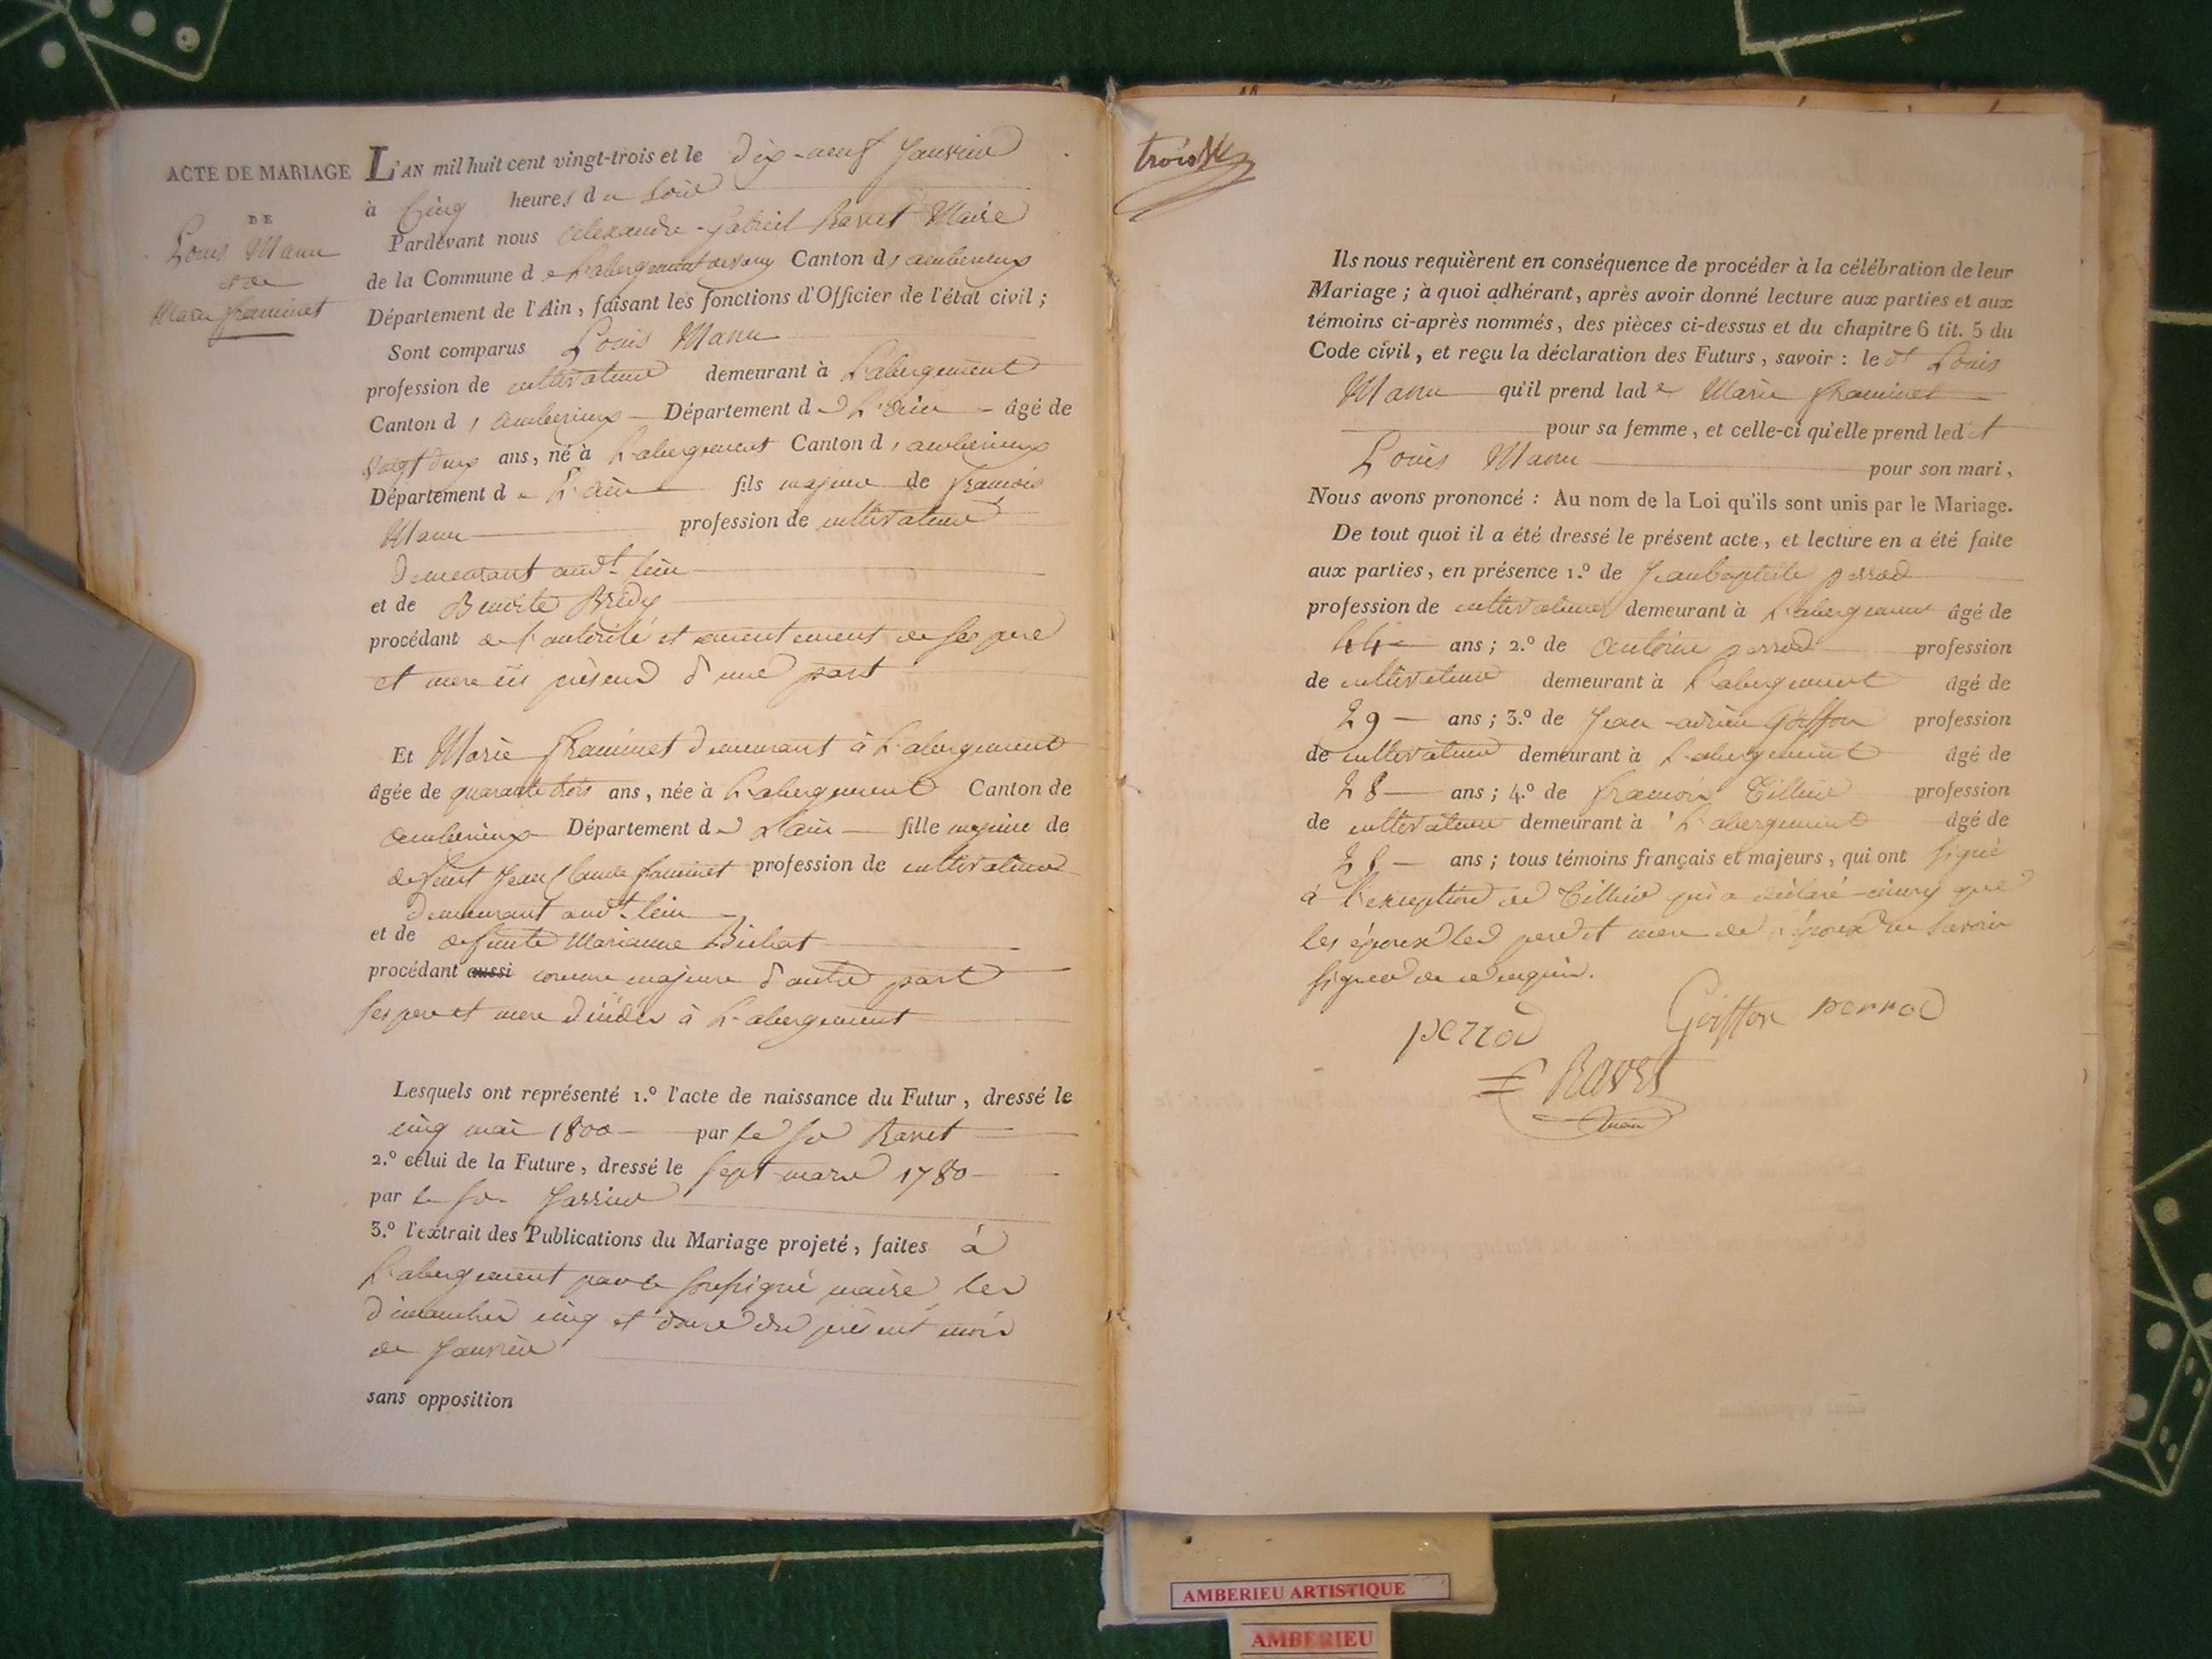 ACTE DE MARIAGE
DE
Louis Manu
et de
Marie framinet
L'AN mil huit cent vingt-trois et le dix-neuf Janvier
à Cinq heures du soir
Pardevant nous Alexandre-Gabriel Ravet Maire
de la Commune de L'abergement de Canton d'amberieux
Département de l'Ain, faisant les fonctions d'Officier de l'état civil;
Sont comparus Louis Manu
profession de cultivateur demeurant à L'abergement
Canton d'amberieux Département de L'ain âgé de
vingt deux ans, né à L'abergement Canton d'amberieux
Département de L'ain fils majeur de francois
Manu profession de cultivateur
demeurant aud.t lieu
et de Benoite
procédant de l'autorité et consentement de ses pere
et mere ici présens d'une part
Et Marie framinet demeurant à L'abergement
âgée de quarante trois ans, née à L'abergement Canton de
amberieux Département de L'ain fille majeure de
defunt Jean Claude framinet profession de cultivateur
demeurant aud.t lieu
et de defunte Marianne Bichat
procédant aussi comme majeure d'autre part
ses pere et mere décédés à L'abergement
Lesquels ont représenté 1.º l'acte de naissance du Futur, dressé le
cinq mai 1800 par le Sr Ravet
2.º celui de la Future, dressé le sept mars 1780
par le Sr
3.º l'extrait des Publications du Mariage projeté, faites à
L'abergement par le soussigné maire les
dimanches cinq et douze du présent mois
de Janvier
sans opposition
trois
Ils nous requièrent en conséquence de procéder à la célébration de leur
Mariage; à quoi adhérant, après avoir donné lecture aux parties et aux
témoins ci-après nommés, des pièces ci-dessus et du chapitre 6 tit. 5 du
Code civil, et reçu la déclaration des Futurs, savoir: le dt Louis
Manu qu'il prend lade Marie framinet
pour sa femme, et celle-ci qu'elle prend ledit
Louis Manu pour son mari,
Nous avons prononcé: Au nom de la Loi qu'ils sont unis par le Mariage.
De tout quoi il a été dressé le présent acte, et lecture en a été faite
aux parties, en présence 1.º de Jeanbaptiste perrod
profession de cultivateur demeurant à L'abergement âgé de
44 ans; 2.º de Antoine perrod profession
de cultivateur demeurant à L'abergement âgé de
29 ans; 3.º de Jean-adrien Goiffon profession
de cultivateur demeurant à L'abergement âgé de
28 ans; 4.º de francois Tillier profession
de cultivateur demeurant à L'abergement âgé de
28 ans; tous témoins français et majeurs, qui ont signé
à l'exception de Tillier qui a déclaré ainsy que
les époux les pere et mere de l'époux ne savoir
signer de ce requis.
perrod Goiffon perrod
Ravet
maire
AMBERIEU ARTISTIQUE
AMBERIEU